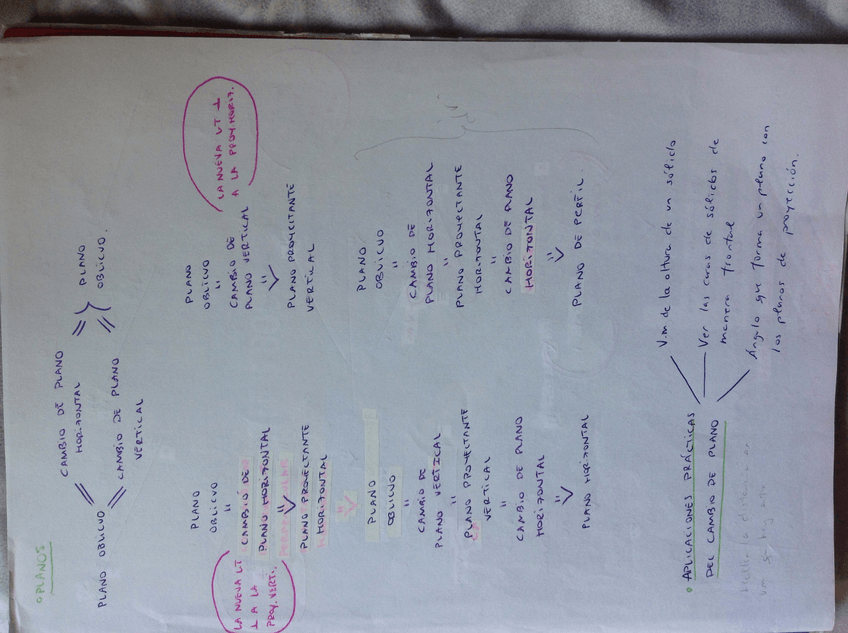 PLANOS
PLANO OBLICUO
CAMBIO DE PLANO
HORIZONTAL
CAMBIO DE PLANO
VERTICAL
PLANO
OBLICUO.
LA NUEVA LT
⊥ A LA
PROY. VERTI.
PLANO
OBLICUO
"
CAMBIO DE
PLANO HORIZONTAL
"
PLANO PROYECTANTE
HORIZONTAL
PLANO
OBLICUO
"
CAMBIO DE
PLANO VERTICAL
"
PLANO PROYECTANTE
VERTICAL
LA NUEVA LT ⊥
A LA PROY. HORIZ.
PLANO
OBLICUO
"
CAMBIO DE
PLANO VERTICAL
"
PLANO PROYECTANTE
VERTICAL
"
CAMBIO DE PLANO
HORIZONTAL
"
PLANO HORIZONTAL
PLANO
OBLICUO
"
CAMBIO DE
PLANO HORIZONTAL
"
PLANO PROYECTANTE
HORIZONTAL
"
CAMBIO DE PLANO
HORIZONTAL
"
PLANO DE PERFIL
APLICACIONES PRÁCTICAS
DEL CAMBIO DE PLANO
V.m de la altura de un sólido
Ver las caras de sólidos de
manera frontal
Ángulo que forma un plano con
los planos de proyección.